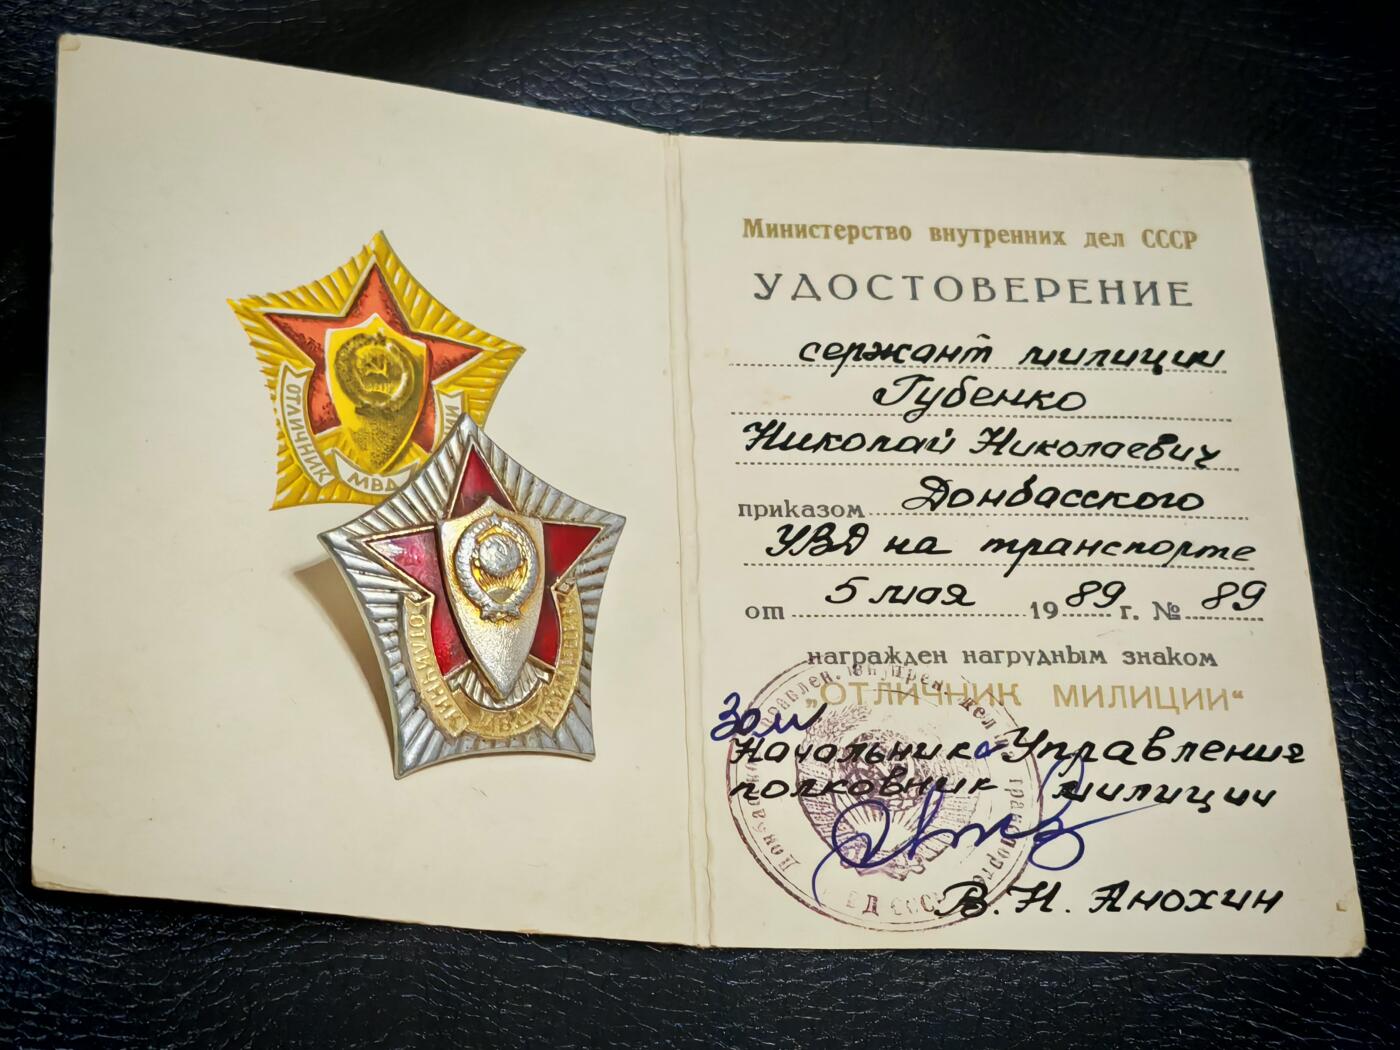 ОТЛИЧНИК
МВД
ОТЛИЧНИК
МВД
МИЛИЦИИ
Министерство внутренних дел СССР
УДОСТОВЕРЕНИЕ
сержант милиции
Губенко
Николай Николаевич
приказом Донбасского
УВД на транспорте
от 5 мая 1989 г. № 89
награжден нагрудным знаком
„ОТЛИЧНИК МИЛИЦИИ“
Зам
Начальника Управления
полковник милиции
В. Н. Анохин